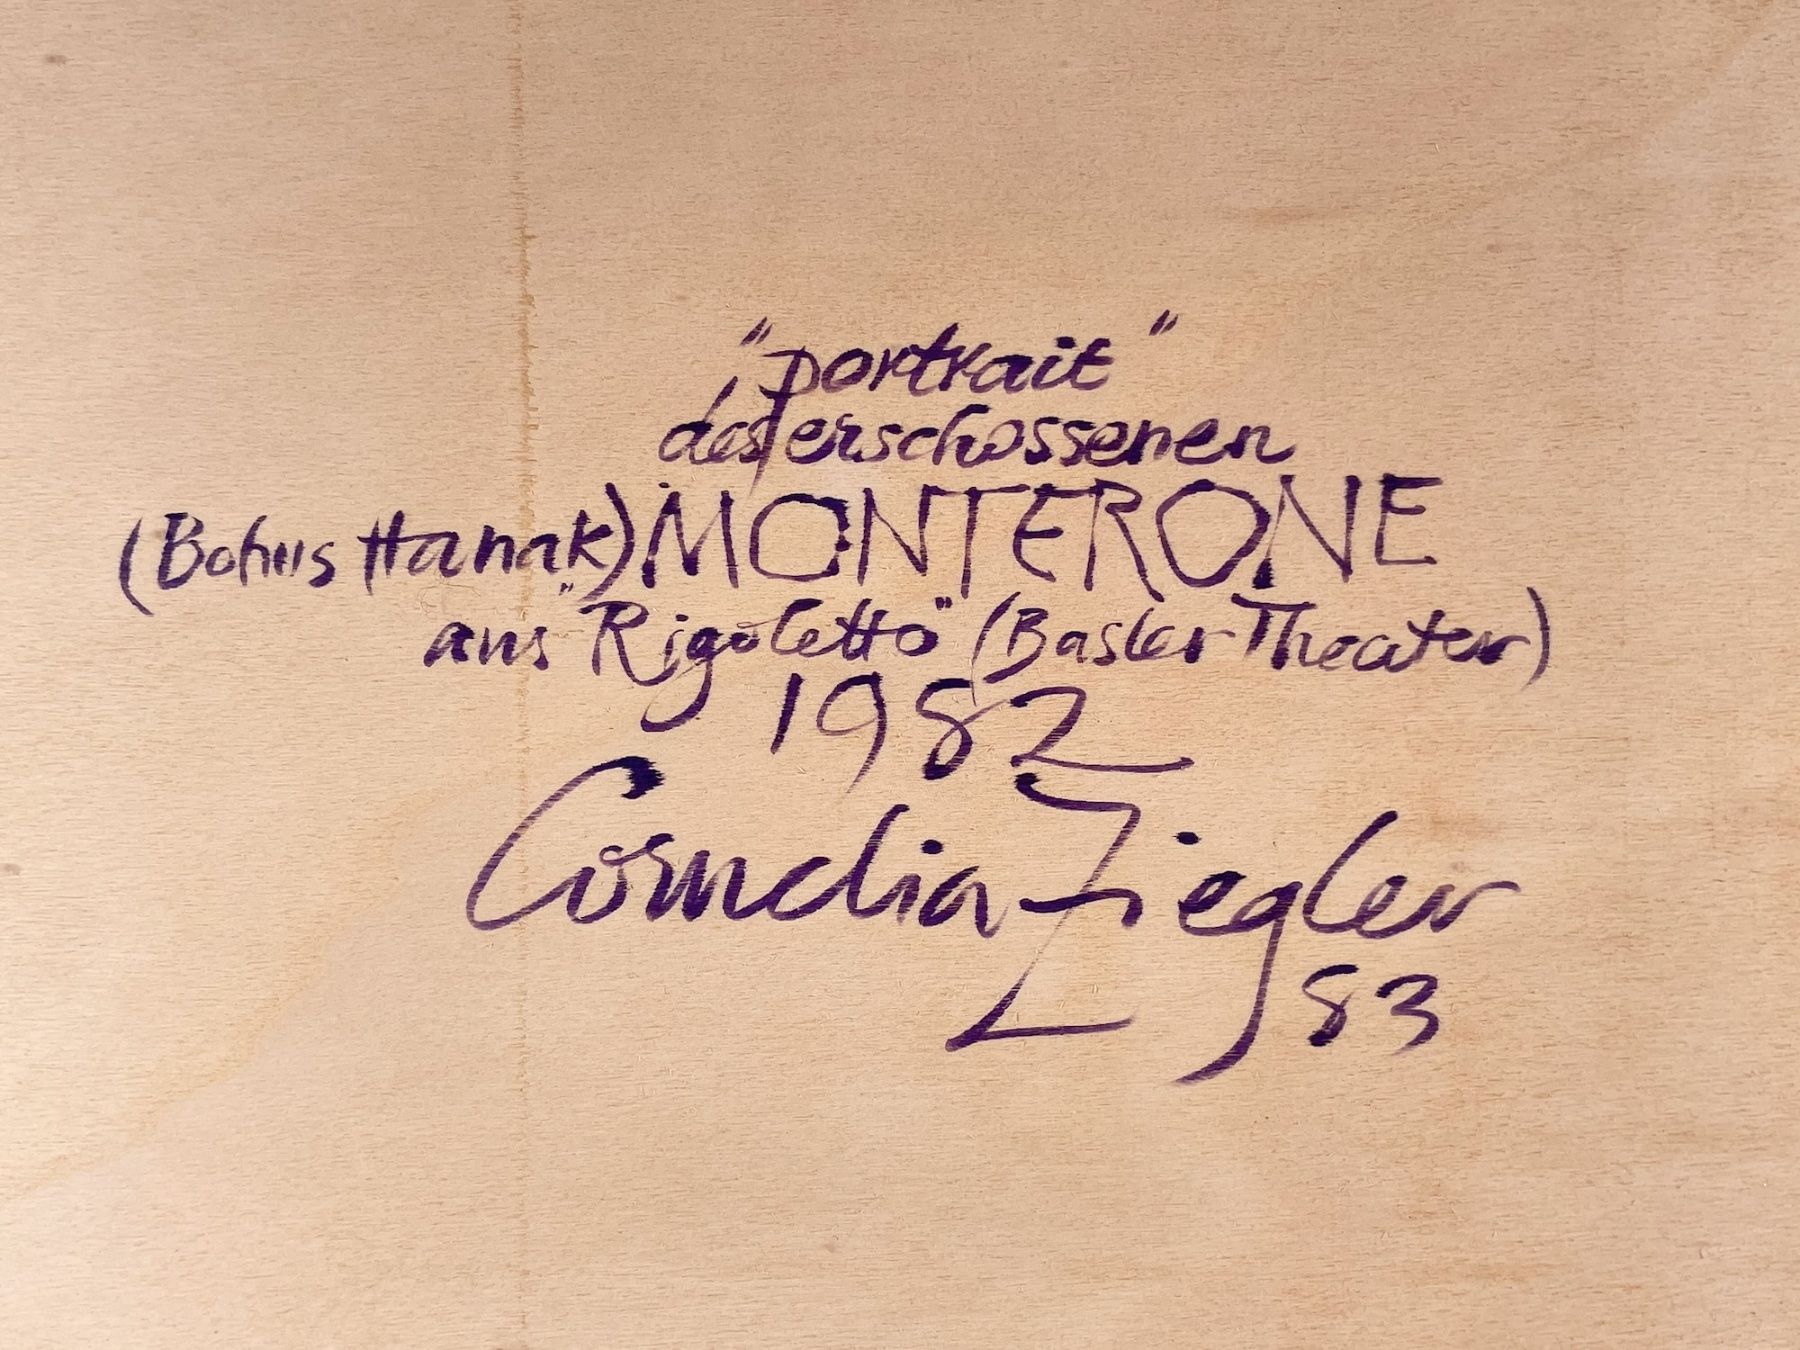 "portrait"
des erschossenen
(Bohus Hanak) MONTERONE
aus "Rigoletto" (Basler Theater)
1982
Cornelia Ziegler
83